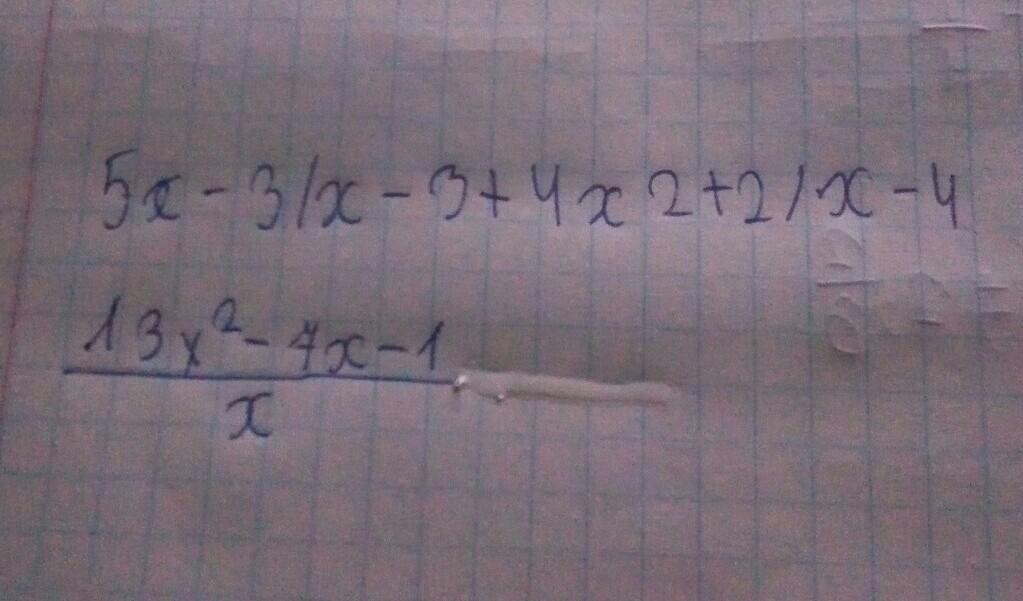 5x-3/x-3+4x2+2/x-4
13x²-7x-1
x